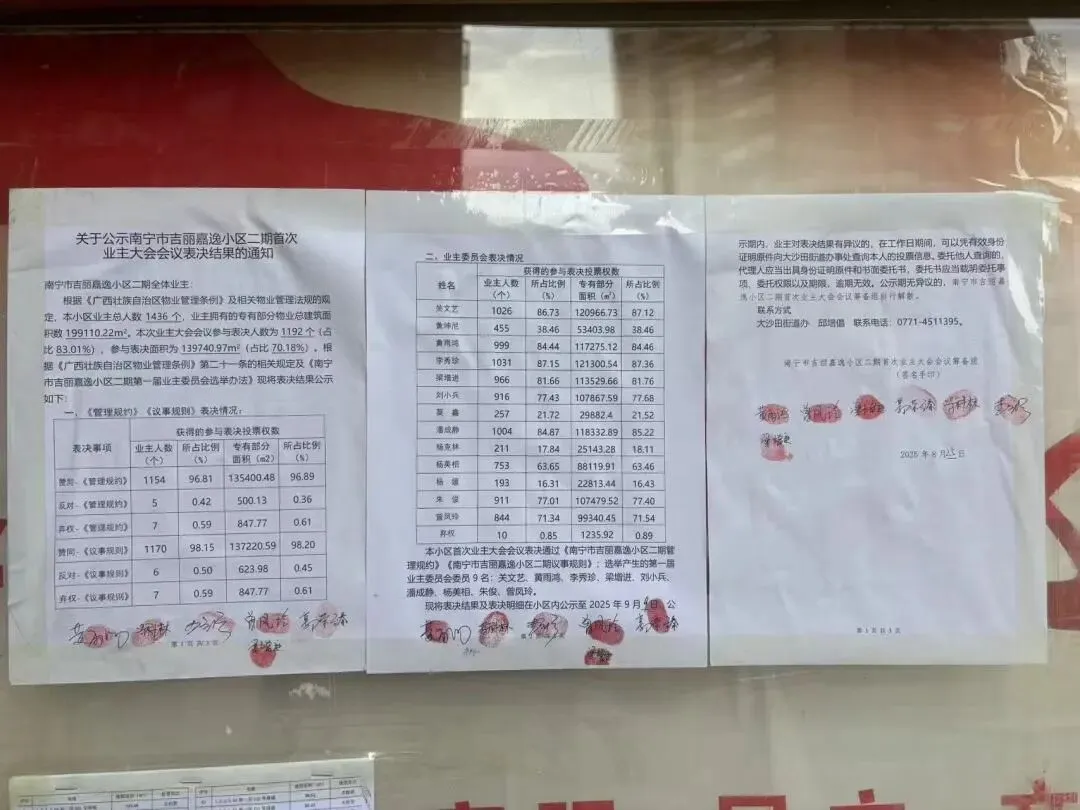 关于公示南宁市吉丽嘉逸小区二期首次
业主大会会议表决结果的通知
南宁市吉丽嘉逸小区二期全体业主：
根据《广西壮族自治区物业管理条例》及相关物业管理法规的规
定，本小区业主总人数 1436 个，业主拥有的专有部分物业总建筑面
积数 199110.22㎡。本次业主大会会议参与表决人数为 1192 个（占
比 83.01%），参与表决面积为 139740.97㎡（占比 70.18%）。根
据《广西壮族自治区物业管理条例》第二十一条的相关规定及《南宁
市吉丽嘉逸小区二期第一届业主委员会选举办法》现将表决结果公示
如下：
一、《管理规约》《议事规则》表决情况：
表决事项 获得的参与表决投票权数
业主人数（个） 所占比例（%） 专有部分面积（m2） 所占比例（%）
赞同-《管理规约》 1154 96.81 135400.48 96.89
反对-《管理规约》 5 0.42 500.13 0.36
弃权-《管理规约》 7 0.59 847.77 0.61
赞同-《议事规则》 1170 98.15 137220.59 98.20
反对-《议事规则》 6 0.50 623.98 0.45
弃权-《议事规则》 7 0.59 847.77 0.61
第 1 页 共 3 页
二、业主委员会表决情况
姓名 获得的参与表决投票权数
业主人数（个） 所占比例（%） 专有部分面积（㎡） 所占比例（%）
关文艺 1026 86.73 120966.73 87.12
黄坤尼 455 38.46 53403.98 38.46
黄雨鸿 999 84.44 117275.12 84.46
李秀珍 1031 87.15 121300.54 87.36
梁增进 966 81.66 113529.66 81.76
刘小兵 916 77.43 107867.59 77.68
莫鑫 257 21.72 29882.4 21.52
潘成静 1004 84.87 118332.89 85.22
杨克林 211 17.84 25143.28 18.11
杨美相 753 63.65 88119.91 63.46
杨 193 16.31 22813.44 16.43
朱俊 911 77.01 107479.52 77.40
曾凤玲 844 71.34 99340.45 71.54
弃权 10 0.85 1235.92 0.89
本小区首次业主大会会议表决通过《南宁市吉丽嘉逸小区二期管
理规约》《南宁市吉丽嘉逸小区二期议事规则》；选举产生的第一届
业主委员会委员 9 名：关文艺、黄雨鸿、李秀珍、梁增进、刘小兵、
潘成静、杨美相、朱俊、曾凤玲。
现将表决结果及表决明细在小区内公示至 2025 年 9 月 日，公
示期内，业主对表决结果有异议的，在工作日期间，可以凭有效身份
证明原件向大沙田街道办事处查询本人的投票信息。委托他人查询的，
代理人应当出具身份证明原件和书面委托书，委托书应当载明委托事
项、委托权限以及期限，逾期无效。公示期无异议的，南宁市吉丽嘉
逸小区二期首次业主大会会议筹备组自行解散。
联系方式
大沙田街道办 邱培倡 联系电话：0771-4511395。
南宁市吉丽嘉逸小区二期首次业主大会会议筹备组
（签名手印）
2025 年 8 月 25 日
第 3 页 共 3 页